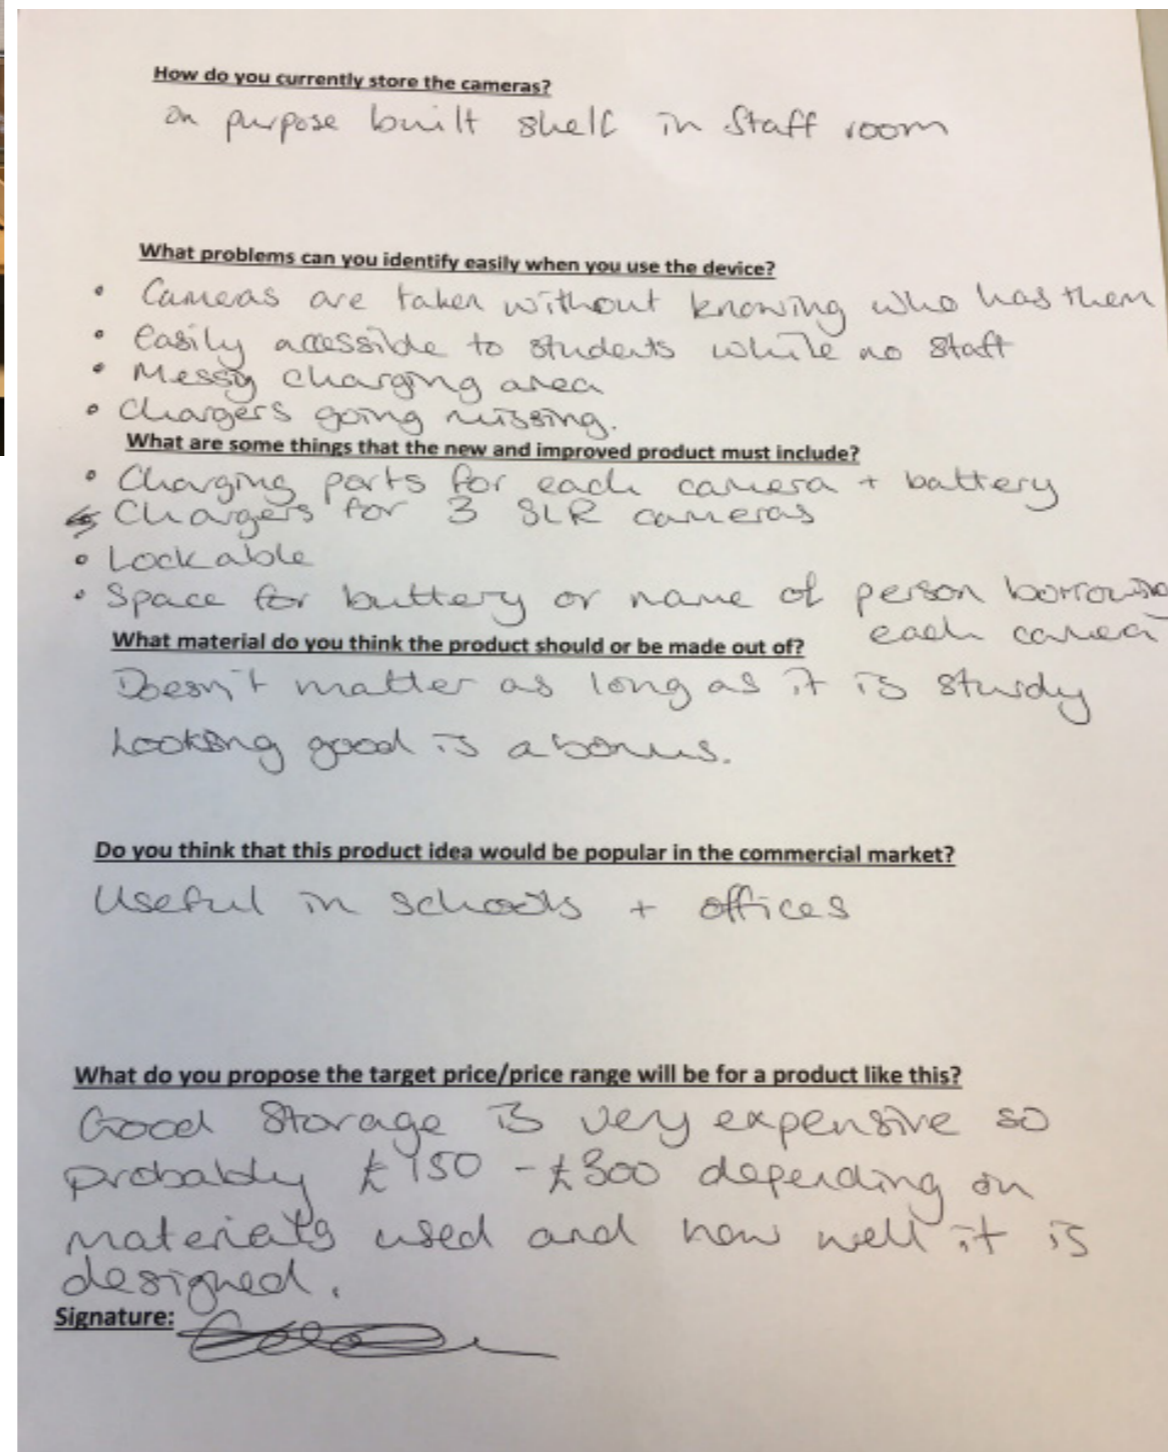 How do you currently store the cameras?
on purpose built shelf in staff room
What problems can you identify easily when you use the device?
• Cameras are taken without knowing who has them
• Easily accessible to students while no staff
• Messy charging area
• Chargers going missing.
What are some things that the new and improved product must include?
• Charging ports for each camera + battery
Chargers for 3 SLR cameras
• Lockable
• Space for buttery or name of person borrowing
each camera
What material do you think the product should or be made out of?
Doesn't matter as long as it is sturdy
Looking good is a bonus.
Do you think that this product idea would be popular in the commercial market?
Useful in schools + offices
What do you propose the target price/price range will be for a product like this?
Good storage is very expensive so
probably £150 - £300 depending on
materials used and how well it is
designed.
Signature: